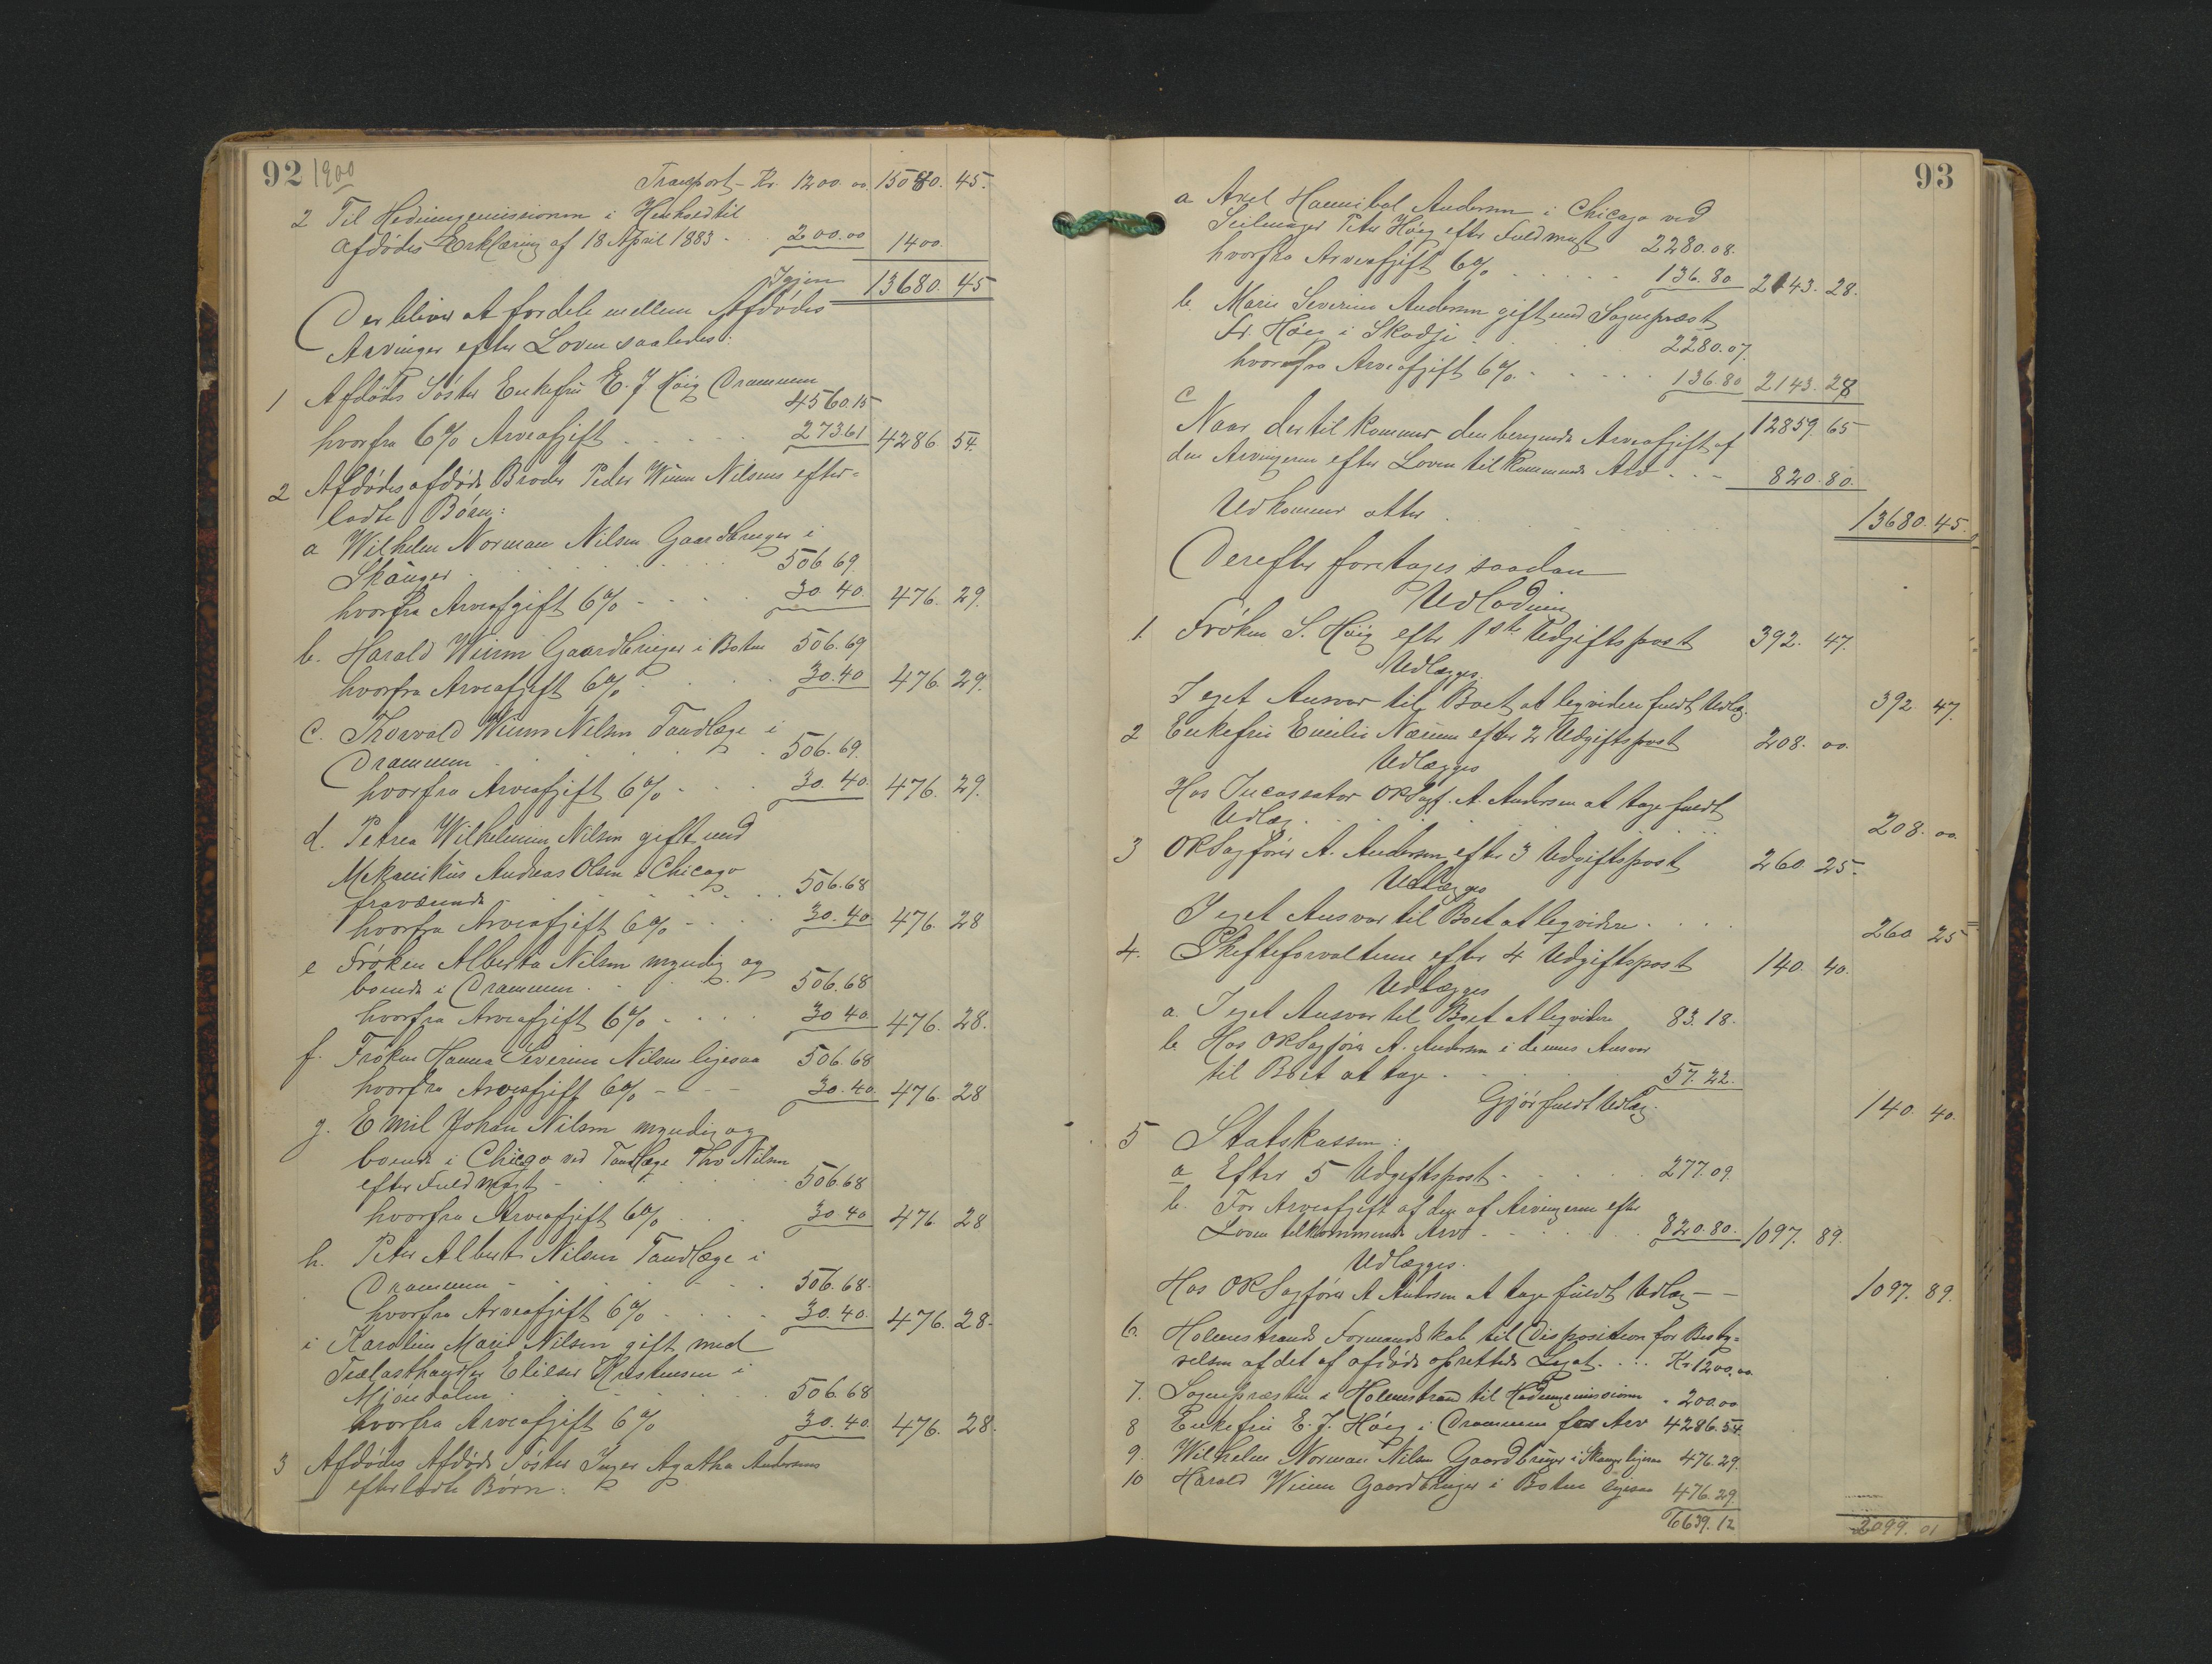 92 1900
Transport - Kr. 1200.00 15080.45.
2 Til Hedningemissionen i Henhold til
afdødes Erklæring af 18 April 1883 - 200.00 1400
Igjen 13680.45
Der bliver at fordele mellem Afdødes
Arvinger efter Loven saaledes:
1 Afdødes Søster Enkefru E. J. Høeg Drammen
4560.15
hvorfra 6% Arveafgift - - - 273.61 4286 54.
2 Afdødes afdøde Broder Peder Wiим Nilsens efter-
ladte Børn:
a Wilhelm Norman Nilsen Gaardbruger i
Skånger . . . 506 69.
hvorfra Arveafgift 6% - - - 30.40. 476. 29.
b. Harald Wiим Gaardbruger i Botne 506.69
hvorfra Arveafgift 6% . . . 30.40 476. 29.
c. Thorvald Wiим Nilsen Tandlæge i
Drammen - . . . 506.69.
hvorfra Arveafgift 6% - . . 30.40. 476. 29.
d. Petrea Wilhelmine Nilsen gift med
Mekanikus Andreas Olsen i Chicago
fraværende - . . . 506.68
hvorfra Arveafgift 6% - . . . 30.40 476. 28
e Frøken Alberta Nilsen myndig og
boende i Drammen . . . 506.68
hvorfra Arveafgift 6% - . . . 30 40 476. 28.
f. Frøken Hanna Severine Nilsen ligesaa 506.68
hvorfra Arveafgift 6% - - - 30.40. 476. 28
g. Emil Johan Nilsen myndig og
boende i Chicago ved Tandlæge Tho Nilsen
efter Fuldmagt - . . . 506.68
hvorfra Arveafgift 6% . . . 30.40 476 28
h. Peter Albert Nilsen Tandlæge i
Drammen - . . . 506.68.
hvorfra Arveafgift 6% . . . 30.40. 476. 28.
i Karoline Marie Nilsen gift med
Trælasthandler Elieser Kristensen i
Mjøndalen . . . 506.68
hvorfra Arveafgift 6% 30.40. 476. 28.
3 Afdødes Afdøde Søster Inger Agatha Andersens
efterladte Børn:
93
a Axel Hannibal Andersen i Chicago ved
Seilmager Peter Høeg efter Fuldmagt 2280.08.
hvorfra Arveafgift 6% - . . . 136.80 2143. 28.
b. Marie Severine Andersen gift med Sogneprest
Fr. Høeg i Skodje . . . 2280.07.
hvorafra Arveafgift 6% - . . . 136.80 2143. 28
c
Naar dertil kommer den beregnede Arveafgift af 12859 65
den Arvingerne efter Loven tilkommende Arv . - - 820.80.
Udkommer atter . . . 13680.45.
Derefter foretages saadan
Udlodning
1. Frøken S. Høeg efter 1ste Udgiftspost 392. 47.
Udlægges
I eget Ansvar til Boet at leqvidere fuldt Udlæg. 392 47.
2 Enkefru Emilie Næum efter 2 Udgiftspost 208. 00.
Udlægges
Hos Incassator ORSagf. A. Andersen at tage fuldt
Udlæg . . . 208. 00.
3 ORSagfører A. Andersen efter 3 Udgiftspost 260 25.
Udlægges
I eget Ansvar til Boet at leqvidere . . . 260 25
4. Skifteforvalteren efter 4 Udgiftspost 140. 40.
Udlægges
a. I eget Ansvar til Boet at leqvidere 83.18.
b Hos ORSagfører A. Andersen i dennes Ansvar
til Boet at tage . . . 57.22.
Gjør fuldt Udlæg. 140. 40.
5 Statskassen:
a Efter 5 Udgiftspost - . . . 277.09
b. For Arveafgift af den af Arvingerne efter
Loven tilkommende Arv - . . . 820.80. 1097. 89.
Udlægges.
Hos ORSagfører A Andersen at tage fuldt Udlæg - - 1097. 89.
6. Holmestrands Formandskab til Disposition for Besty-
relsen af det af afdøde oprettede Legat . . : Kr 1200.00
7. Sognepresten i Holmestrand til Hedningemissionen - 200.00
8 Enkefru E. J. Høeg i Drammen for Arv 4286.54.
9. Wilhelm Norman Nilsen Gaardbruger i Skånger ligesaa 476.29.
10 Harald Wiим Gaardbruger i Botne ligesaa 476.29
6639.12 2099. 01